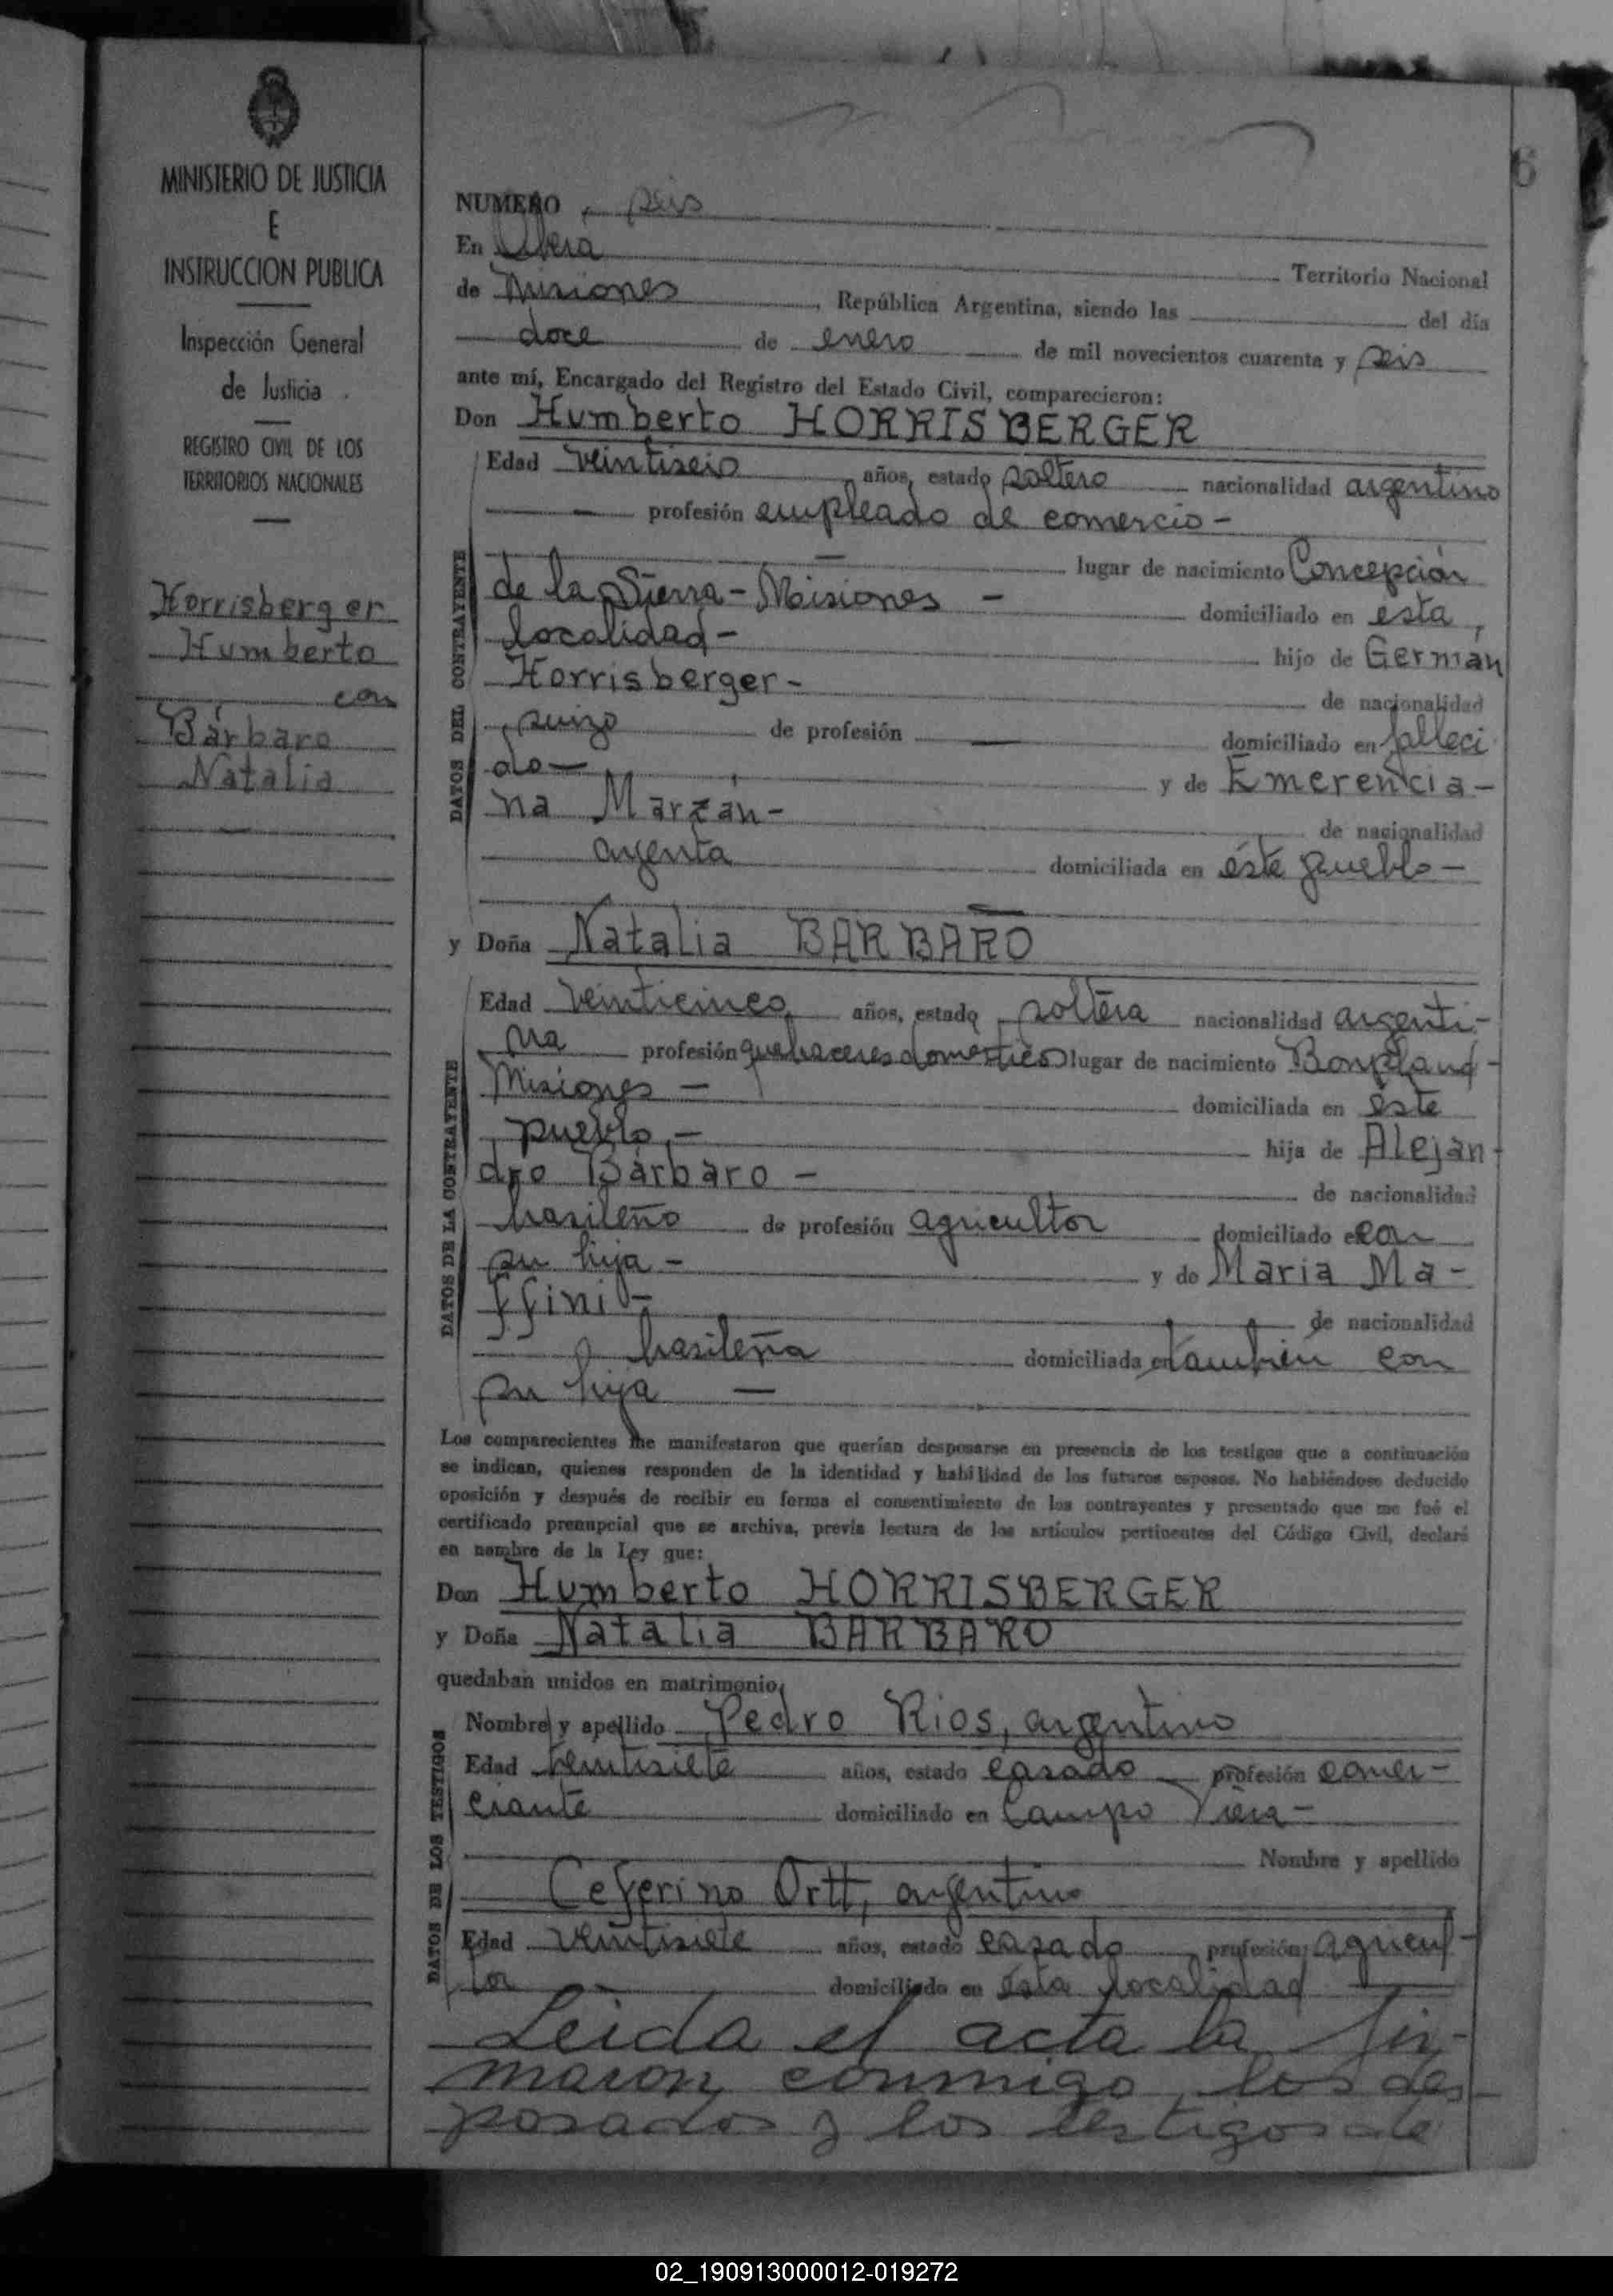 MINISTERIO DE JUSTICIA
E
INSTRUCCION PUBLICA
Inspección General
de Justicia
REGISTRO CIVIL DE LOS
TERRITORIOS NACIONALES
Horrisberger
Humberto
con
Bárbaro
Natalia
6
NUMERO seis
En Oberá Territorio Nacional
de Misiones, República Argentina, siendo las — del día
doce de enero de mil novecientos cuarenta y seis
ante mí, Encargado del Registro del Estado Civil, comparecieron:
Don Humberto HORRISBERGER
DATOS DEL CONTRAYENTE
Edad veintiseis años, estado soltero nacionalidad argentino
— profesión empleado de comercio -
— lugar de nacimiento Concepción
de la Sierra - Misiones - domiciliado en esta,
localidad - hijo de German
Horrisberger - de nacionalidad
suizo de profesión — domiciliado en falleci
do — y de Emerencia -
na Marzán - de nacionalidad
argenta domiciliada en éste pueblo -
y Doña Natalia BARBARO
DATOS DE LA CONTRAYENTE
Edad veinticinco años, estado soltera nacionalidad argenti-
na profesión quehaceres domesticos lugar de nacimiento Bonpland -
Misiones — domiciliada en este
pueblo - hija de Alejan-
dro Bárbaro - de nacionalidad
brasileño de profesión agricultor domiciliado con
su hija - y de Maria Ma-
ffini - de nacionalidad
brasileña domiciliada en también con
su hija —
Los comparecientes me manifestaron que querían desposarse en presencia de los testigos que a continuación
se indican, quienes responden de la identidad y habilidad de los futuros esposos. No habiéndose deducido
oposición y después de recibir en forma el consentimiento de los contrayentes y presentado que me fué el
certificado prenupcial que se archiva, previa lectura de los artículos pertinentes del Código Civil, declaré
en nombre de la Ley que:
Don Humberto HORRISBERGER
y Doña Natalia BARBARO
quedaban unidos en matrimonio.
DATOS DE LOS TESTIGOS
Nombre y apellido Pedro Rios, argentino
Edad veintisiete años, estado casado profesión comer-
ciante domiciliado en Campo Viera -
Nombre y apellido
Ceferino Ortt, argentino
Edad veintisiete años, estado casado, profesión agricul-
tor domiciliado en ésta localidad
Leida el acta la fir-
maron conmigo, los des-
posados y los testigos de
02_190913000012-019272